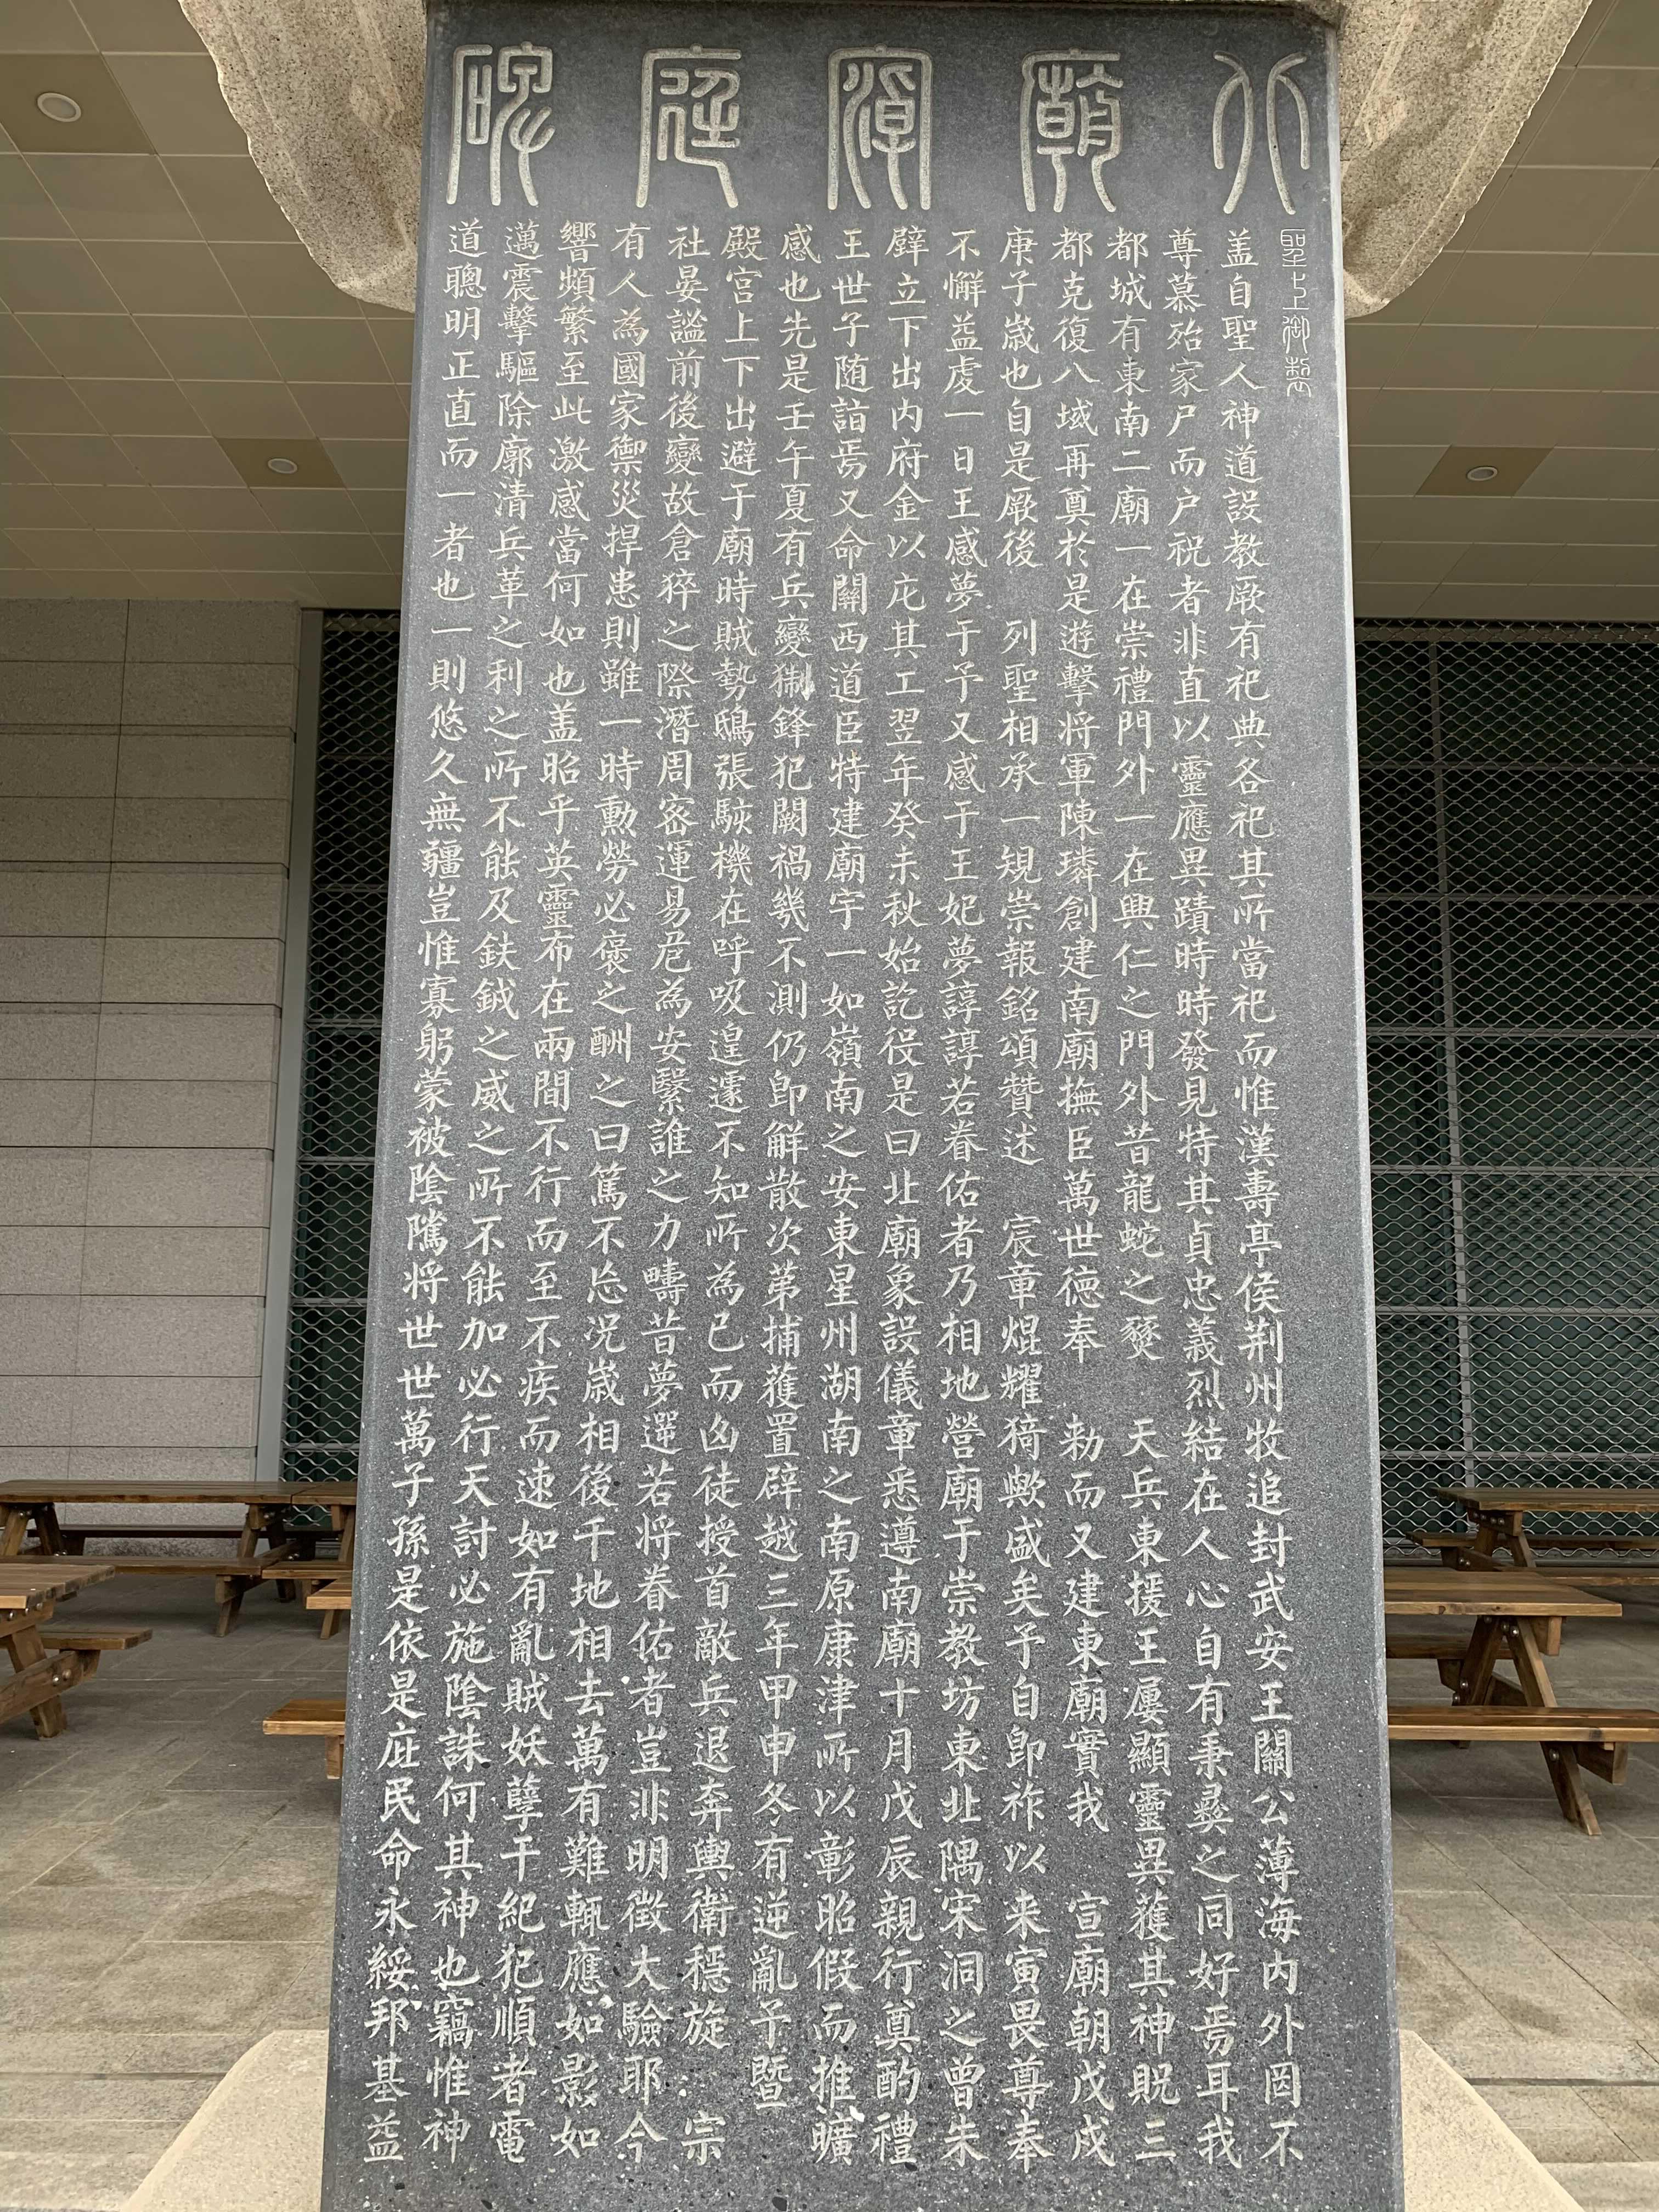 北廟廟庭碑
聖上御製
盖自聖人神道設教厥有祀典各祀其所當祀而惟漢壽亭侯荆州牧追封武安王關公薄海內外罔不
尊慕殆家尸而户祝者非直以靈應異蹟時時發見特其貞忠義烈結在人心自有秉彝之同好焉耳我
都城有東南二廟一在崇禮門外一在興仁之門外昔龍蛇之燹 天兵東援王屢顯靈異獲其神貺三
都克復八域再奠於是遊擊将軍陳璘創建南廟撫臣萬世德奉 勅而又建東廟實我 宣廟朝戊戍
庚子歲也自是厥後 列聖相承一規崇報銘頌贊述 宸章焜耀猗歟盛矣予自卽祚以来寅畏尊奉
不懈益虔一日王感夢于予又感于王妃夢諄諄若眷佑者乃相地營廟于崇教坊東北隅宋洞之曾朱
壁立下出內府金以庀其工翌年癸未秋始訖役是曰北廟象設儀章悉遵南廟十月戊辰親行奠酌禮
王世子随詣焉又命關西道臣特建廟宇一如嶺南之安東星州湖南之南原康津所以彰昭假而推曠
感也先是壬午夏有兵變猘鋒犯闕禍幾不測仍卽解散次苐捕獲置辟越三年甲申冬有逆亂予暨
殿宮上下出避于廟時賊勢鴟張駭機在呼吸遑遽不知所為已而凶徒授首敵兵退奔輿衛穩旋 宗
社晏謐前後變故倉猝之際潛周密運易危為安繄誰之力疇昔夢遌若将眷佑者豈非明徵大驗耶今
有人為國家禦災捍患則雖一時勲勞必褒之酬之曰篤不忘况歲相後千地相去萬有難輒應如影如
響頻繁至此激感當何如也盖昭乎英靈布在兩間不行而至不疾而速如有亂賊妖孽干紀犯順者電
邁震擊驅除廓清兵革之利之所不能及鈇鉞之威之所不能加必行天討必施陰誅何其神也竊惟神
道聰明正直而一者也一則悠久無疆豈惟寡躬蒙被陰隲将世世萬子孫是依是庇民命永綏邦基益